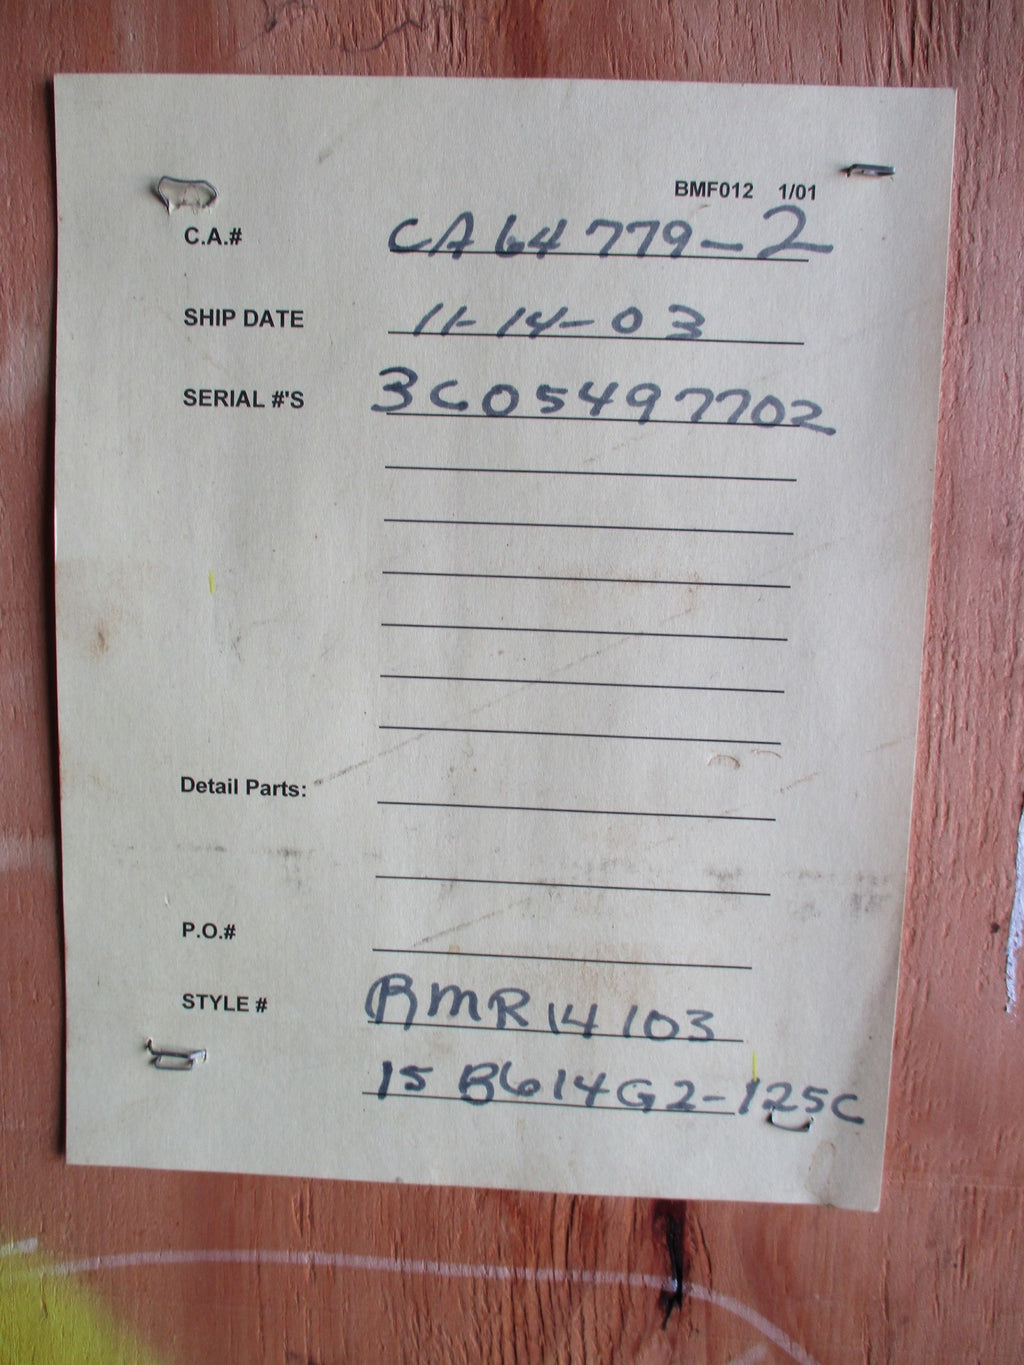 BMF012 1/01
C.A.# CA64779-2
SHIP DATE 11-14-03
SERIAL #'S 3C05497702
Detail Parts:
P.O.#
STYLE # RMR14103
15 B614G2-125C